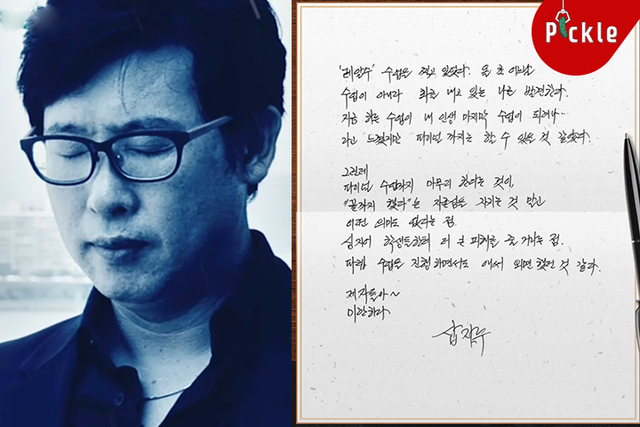 Pickle
수업은 찍고 있었다. 올 초 어느날
수업이 아니라 화를 내고 있는 나를 발견했다.
지금 하는 수업이 내 인생 마지막 수업이
라고 느꼈지만 파이널 까지는 할 수 있을 것 같았다.
그런데
파이널 수업까지 마무리 한다는 것이,
"끝까지 했다"는 자존심을 지키는 것 말고
어떤 의미도 없다는 걸.
심지어 학생들한테 더 큰 피해를 줄 거라는 걸.
수업은 진행하면서도 애써 외면 했던 것 같다.
제자들아~
미안하다
삽자루